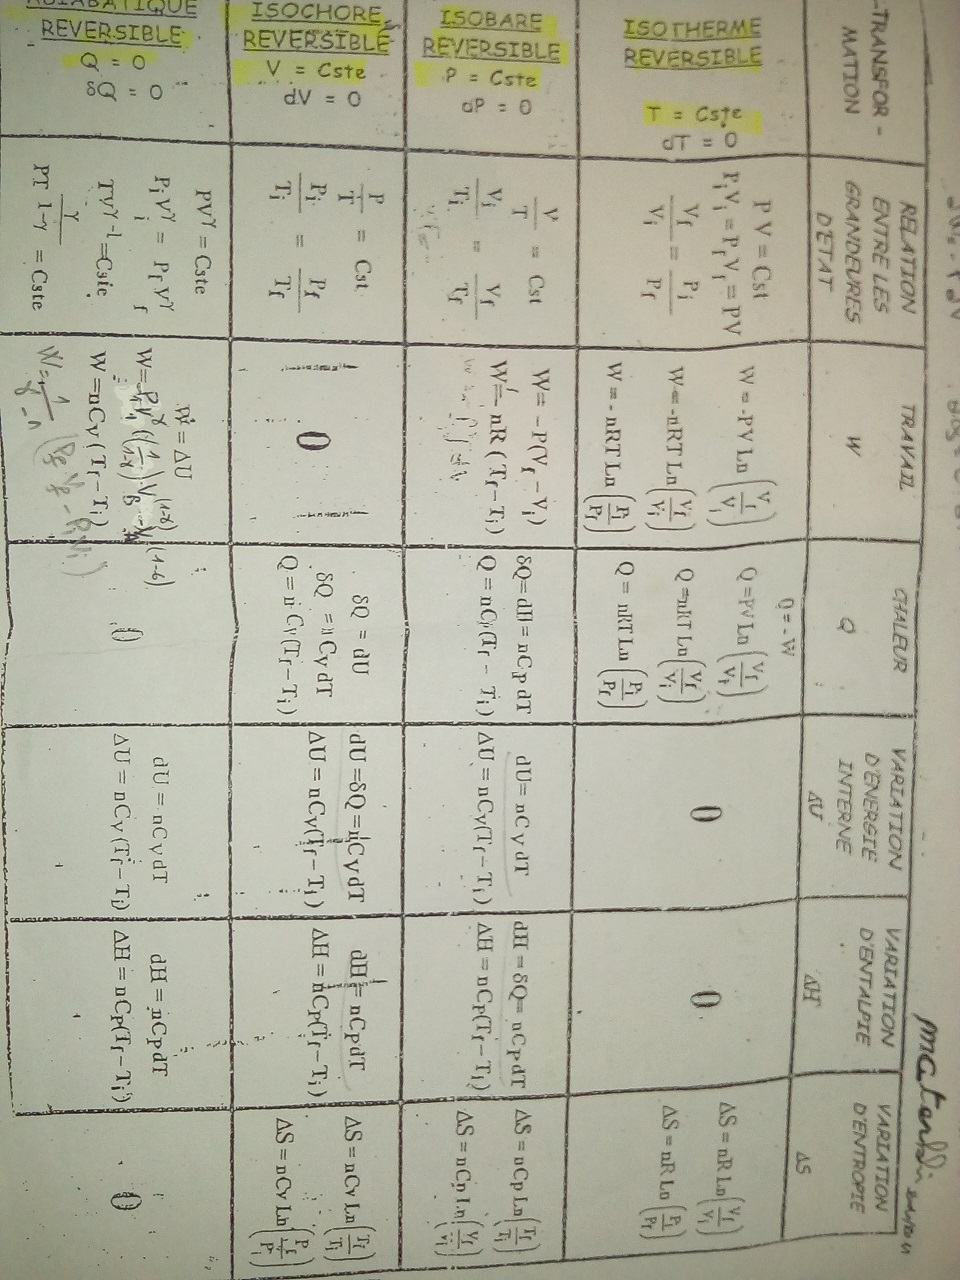 TRANSFOR-
MATION
RELATION
ENTRE LES
GRANDEURES
D'ETAT
TRAVAIL
W
CHALEUR
Q
VARIATION
D'ENERGIE
INTERNE
ΔU
VARIATION
D'ENTALPIE
ΔH
VARIATION
D'ENTROPIE
ΔS
ISOTHERME
REVERSIBLE
T = Cste
dT = 0
P V = Cst
PiVi = PfVf = PV
Vf/Vi = Pi/Pf
W = -PV Ln (Vf/Vi)
W = -nRT Ln (Vf/Vi)
W = - nRT Ln (Pi/Pf)
Q = -W
Q = PV Ln
Q = nRT Ln (Vf/Vi)
Q = nRT Ln (Pi/Pf)
0
0
ΔS = nR Ln (Vf/Vi)
ΔS = nR Ln (Pi/Pf)
ISOBARE
REVERSIBLE
P = Cste
dP = 0
V/T = Cst
Vi/Ti = Vf/Tf
W = -P(Vf - Vi)
W = - nR (Tf - Ti)
δQ = dH = nCp dT
Q = nCp(Tf - Ti)
dU = nCv dT
ΔU = nCv(Tf - Ti)
dH = δQ = nCp dT
ΔH = nCp(Tf - Ti)
ΔS = nCp Ln (Tf/Ti)
ΔS = nCp Ln (Vf/Vi)
ISOCHORE
REVERSIBLE
V = Cste
dV = 0
P/T = Cst
Pi/Ti = Pf/Tf
0
δQ = dU
δQ = nCv dT
Q = nCv (Tf - Ti)
dU = δQ = nCv dT
ΔU = nCv(Tf - Ti)
dH = nCp dT
ΔH = nCp(Tf - Ti)
ΔS = nCv Ln (Tf/Ti)
ΔS = nCv Ln (Pf/Pi)
ADIABATIQUE
REVERSIBLE
Q = 0
δQ = 0
PVγ = Cste
PiViγ = PfVfγ
TVγ-1 = Cste
PT γ/1-γ = Cste
W = ΔU
W = nCv (Tf - Ti)
0
dU = nCv dT
ΔU = nCv (Tf - Ti)
dH = nCp dT
ΔH = nCp(Tf - Ti)
0